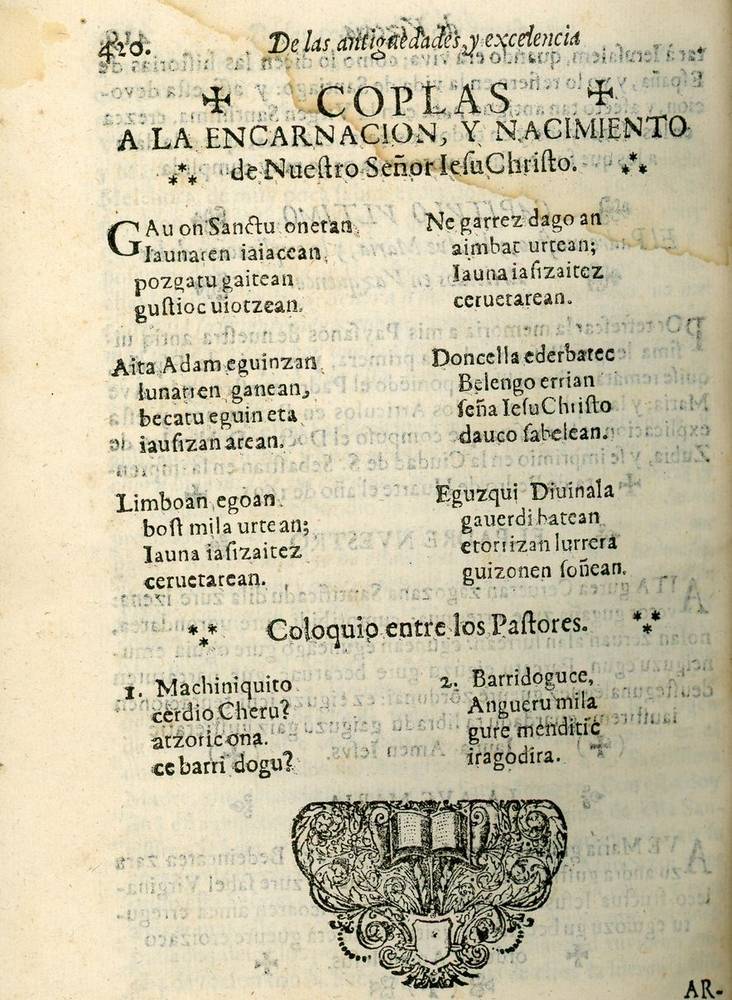 420. De las antiguedades, y excelencia
✠ COPLAS ✠
A LA ENCARNACION, Y NACIMIENTO
de Nueſtro Señor IeſuChriſto.
GAu on Sanctu onetan
Iaunaren iaiacean,
pozgatu gaitean
guſtioc uiotzean.
Aita Adam eguinzan
lunarren ganean,
becatu eguin eta
iauſizan arean.
Limboan egoan
boſt mila urtean;
Iauna iaſizaitez
ceruetarean.
Ne garrez dago an
aimbat urtean;
Iauna iaſizaitez
ceruetarean.
Doncella ederbatec
Belengo errian
ſeña IeſuChriſto
dauco ſabelean.
Eguzqui Diuinala
gauerdi batean
etorrizan lurrera
guizonen ſoñean.
Coloquio entre los Paſtores.
1. Machiniquito
cerdio Cheru?
atzoric ona.
ce barri dogu?
2. Barridoguce,
Angueru mila
gure menditic
iragodira.
AR-